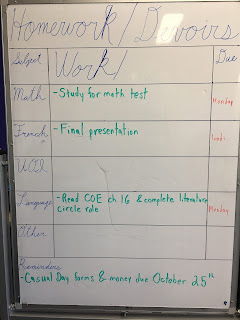 Homework/Devoirs
Subject Work/ Due
Math -Study for math test Monday
French -Final presentation lundi
UOI
Language -Read COE ch 16 & complete literature circle role Monday
Other
Reminders
-Casual Day forms & money due October 25th